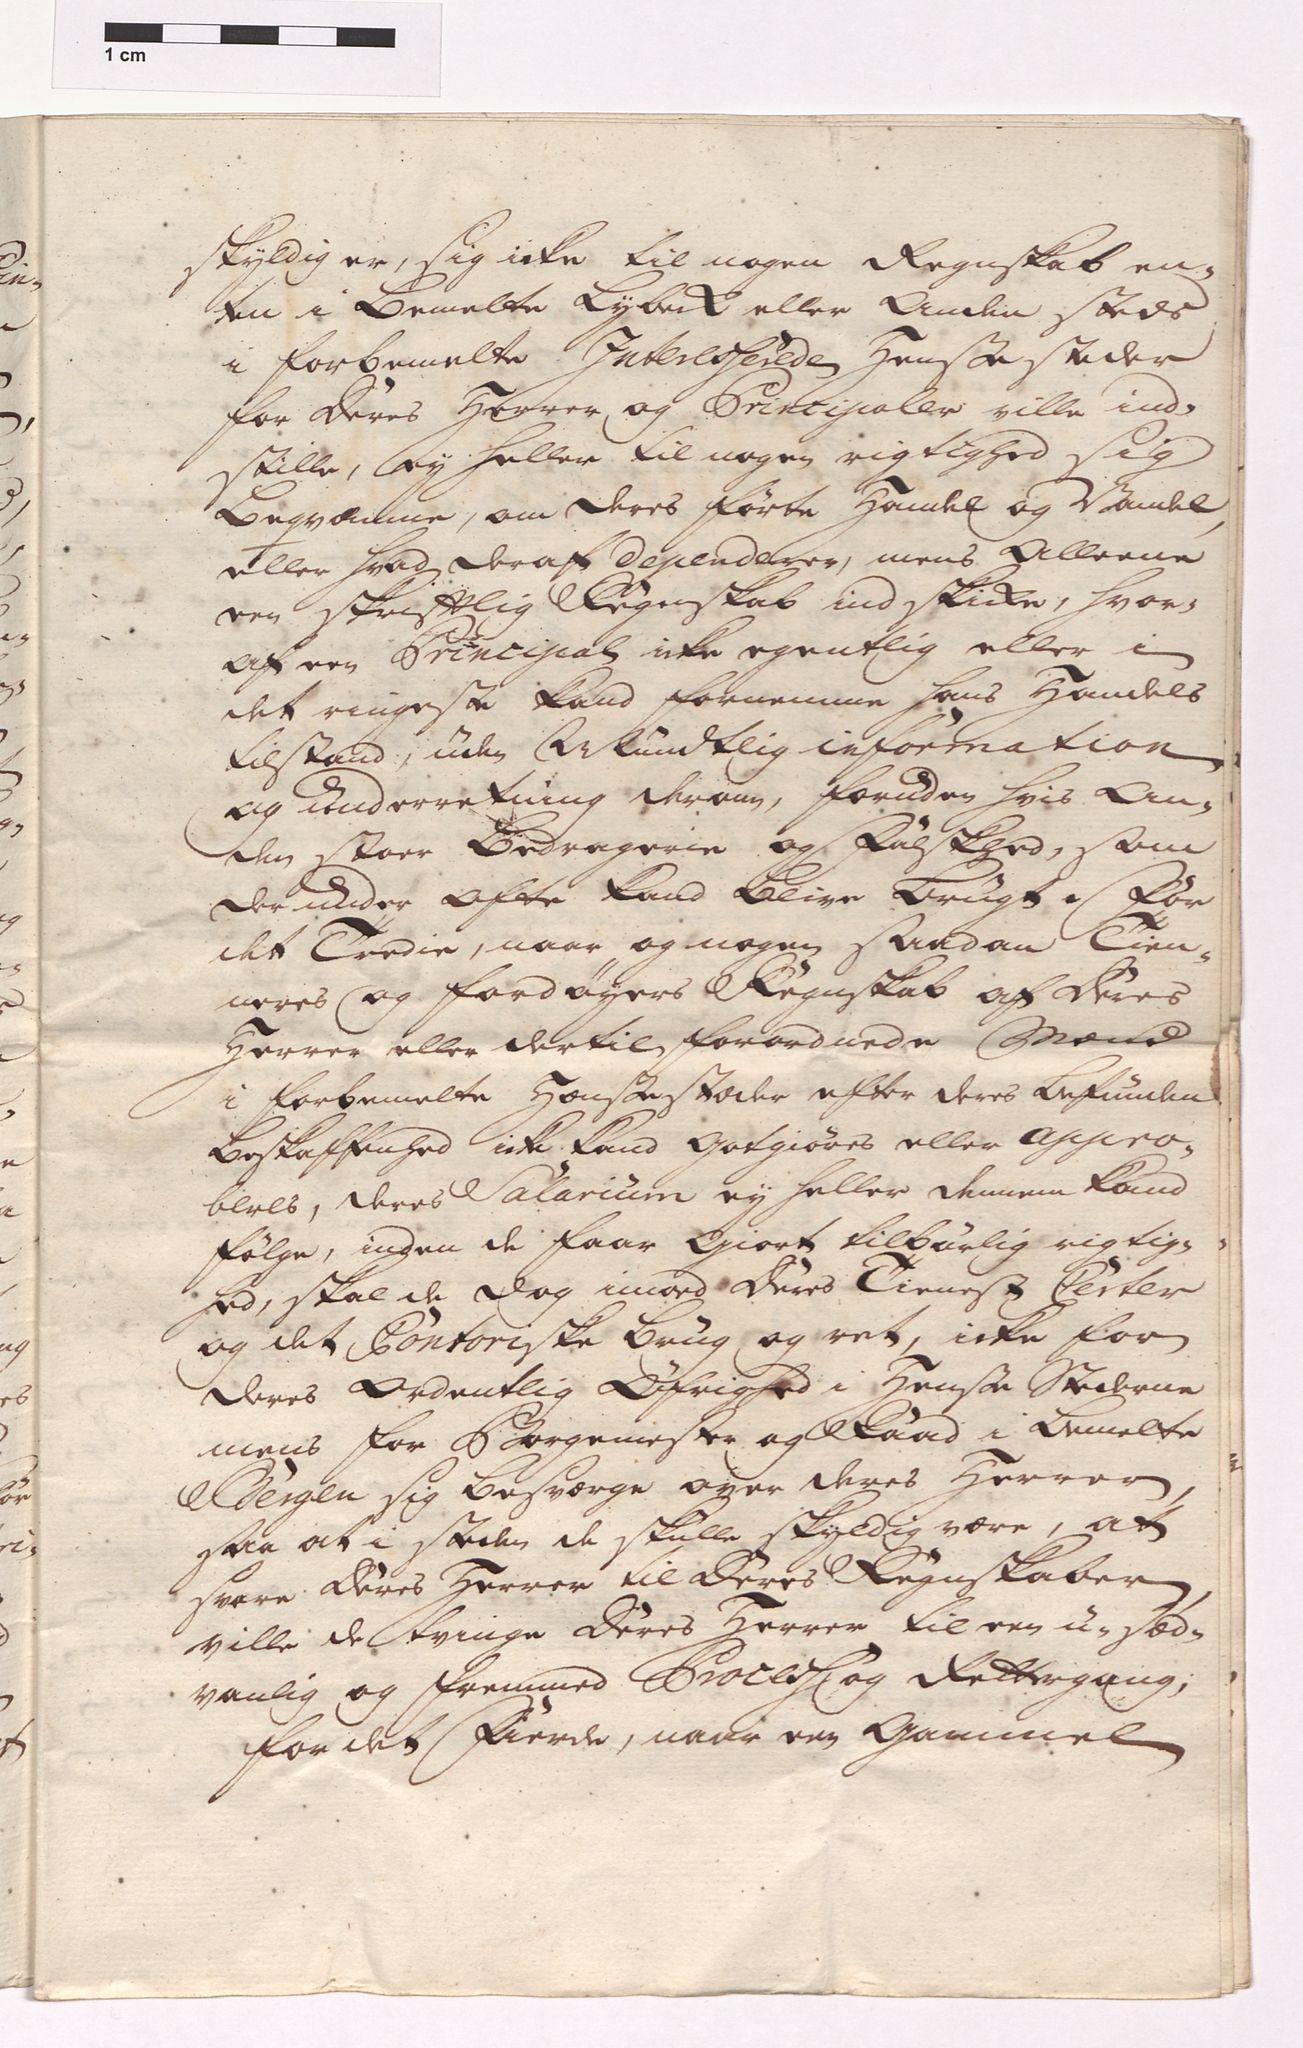 1 cm
skyldig er, sig icke til nogen Regnskab en-
ten i bemelte Lybeck eller Anden steds
i forbemelte Interesserede Hensesteder
for deres Herrer og Principaler ville ind-
stille, ey heller til nogen rigtighed sig
beqvemme, om deres førte Handel og Vandel,
eller hvad deraf dependerer, mens Alleene
een skriftlig Regenskab indskicke, hvor-
af een Principal icke egentlig eller i
det ringeste kand fornemme hans Handels
tilstand, uden Mundtlig information
og underretning derom, foruden hvis An-
den stoer Bedragerie og Falskhed, som
derunder ofte kand blive brugt. For
det Tredie, naar og nogen saadan Tien-
neres og fordøyers Regnskab af deres
Herrer eller dertil forordnede Mænd
i forbemelte Hansestæder efter deres befunden
beskaffenhed icke kand gotgiøres eller appro-
beres, deres Salarium ey heller dennem kand
følge, inden de faar giort tilbürlig rigtig-
hed, skal de dog imod deres Tienest Certer
og det Contoriske brug og ret, icke for
deres ordentlig Øfrighed i Hense Stederne
mens for Borgemester og Raad i bemelte
Bergen sig besværge over deres Herrer,
saa at i steden de skulle skyldig være, at
svare deres Herrer til deres Regnskaber,
ville de tvinge deres Herrer til een u-sæd-
vanlig og fremmed Process og Rettergang;
for det Fierde, naar een Gammel